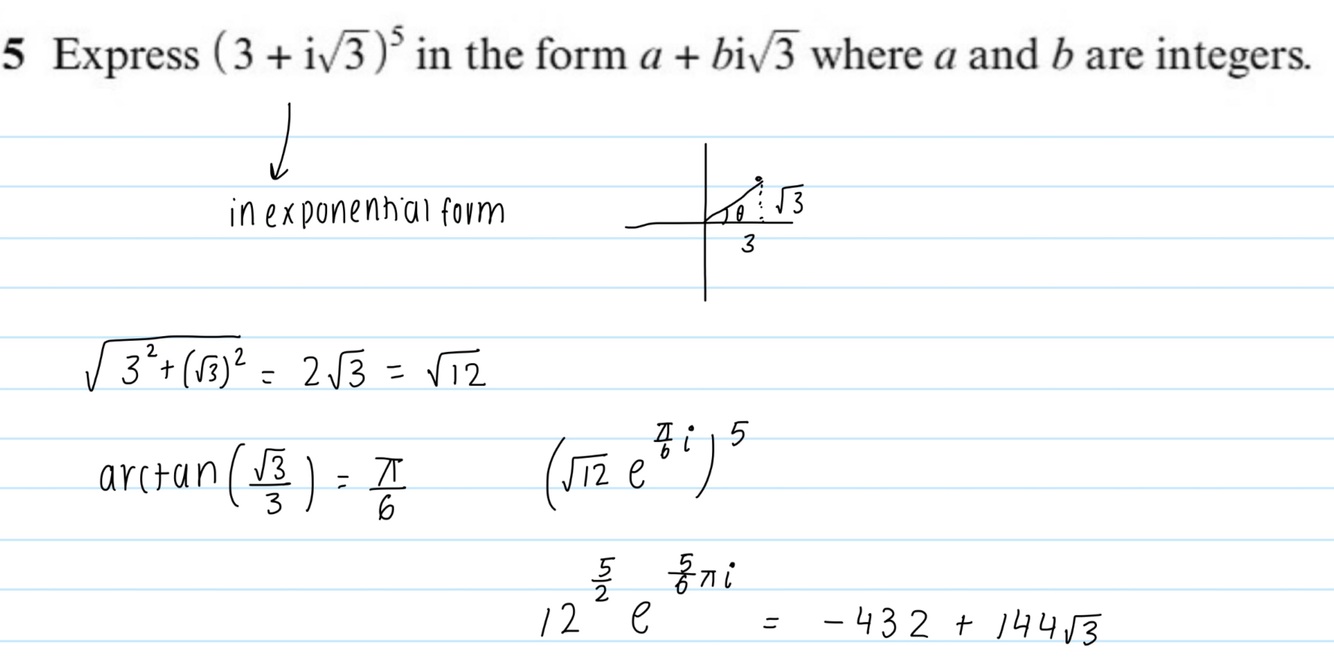 5 Express (3 + i√3)⁵ in the form a + bi√3 where a and b are integers.
in exponential form
θ √3
3
√(3² + (√3)²) = 2√3 = √12
arctan(√3/3) = π/6 (√12 e^(π/6 i))⁵
12^(5/2) e^(5/6 πi) = -432 + 144√3